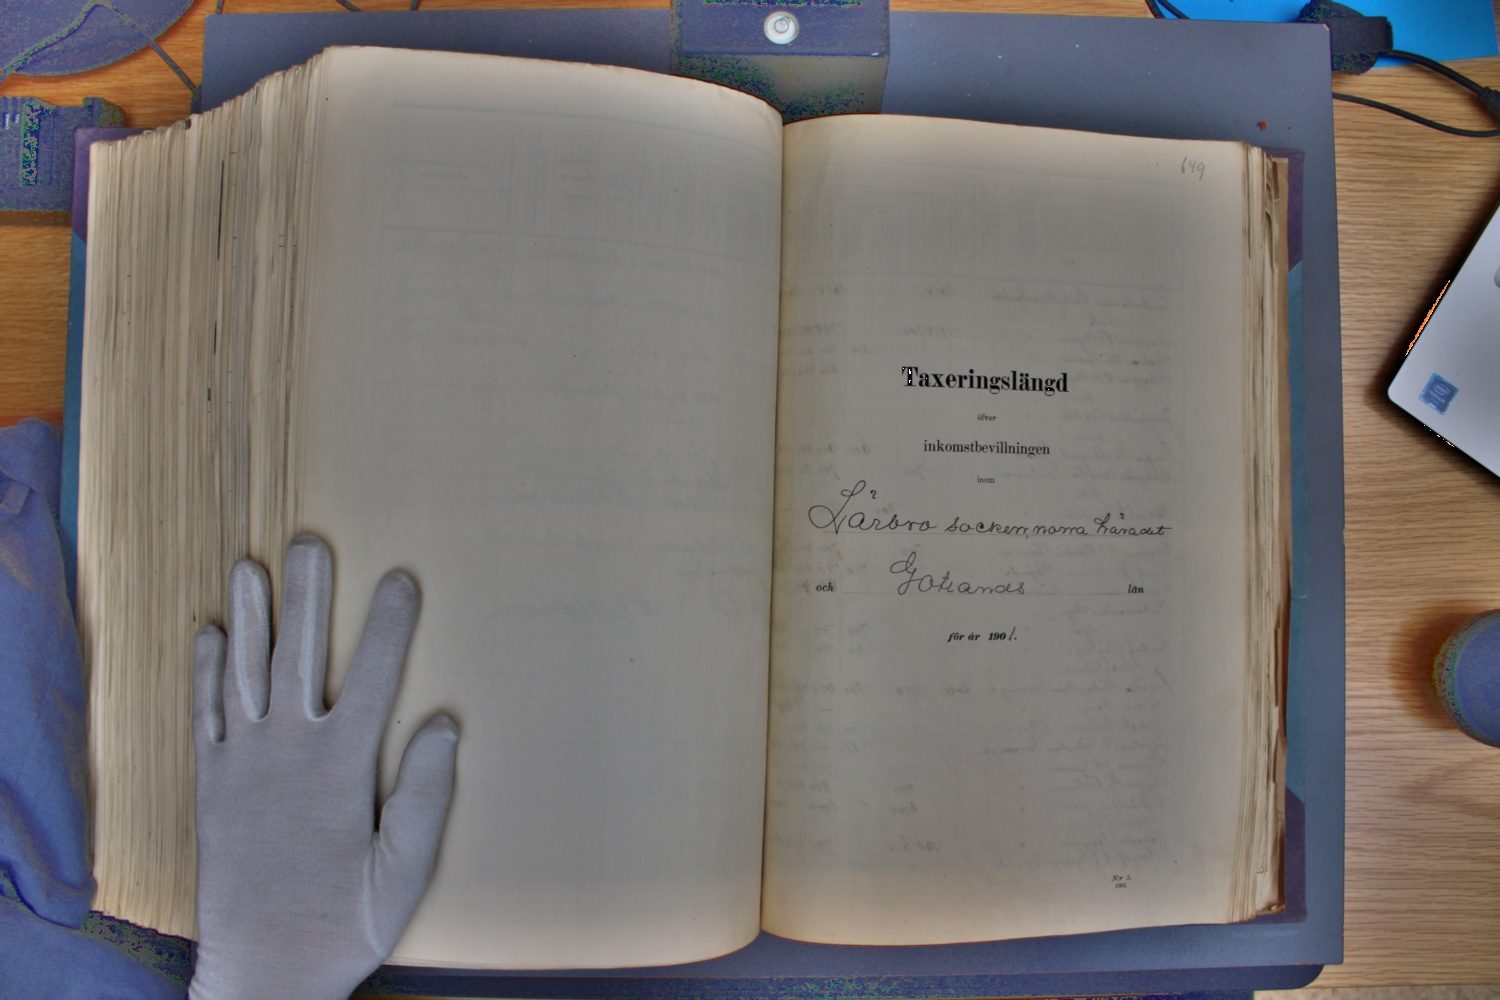 649
Taxeringslängd
öfver
inkomstbevillningen
inom
Lärbro socken, norra häradet
och Gotlands län
för år 1901.
N:r 5.
1901